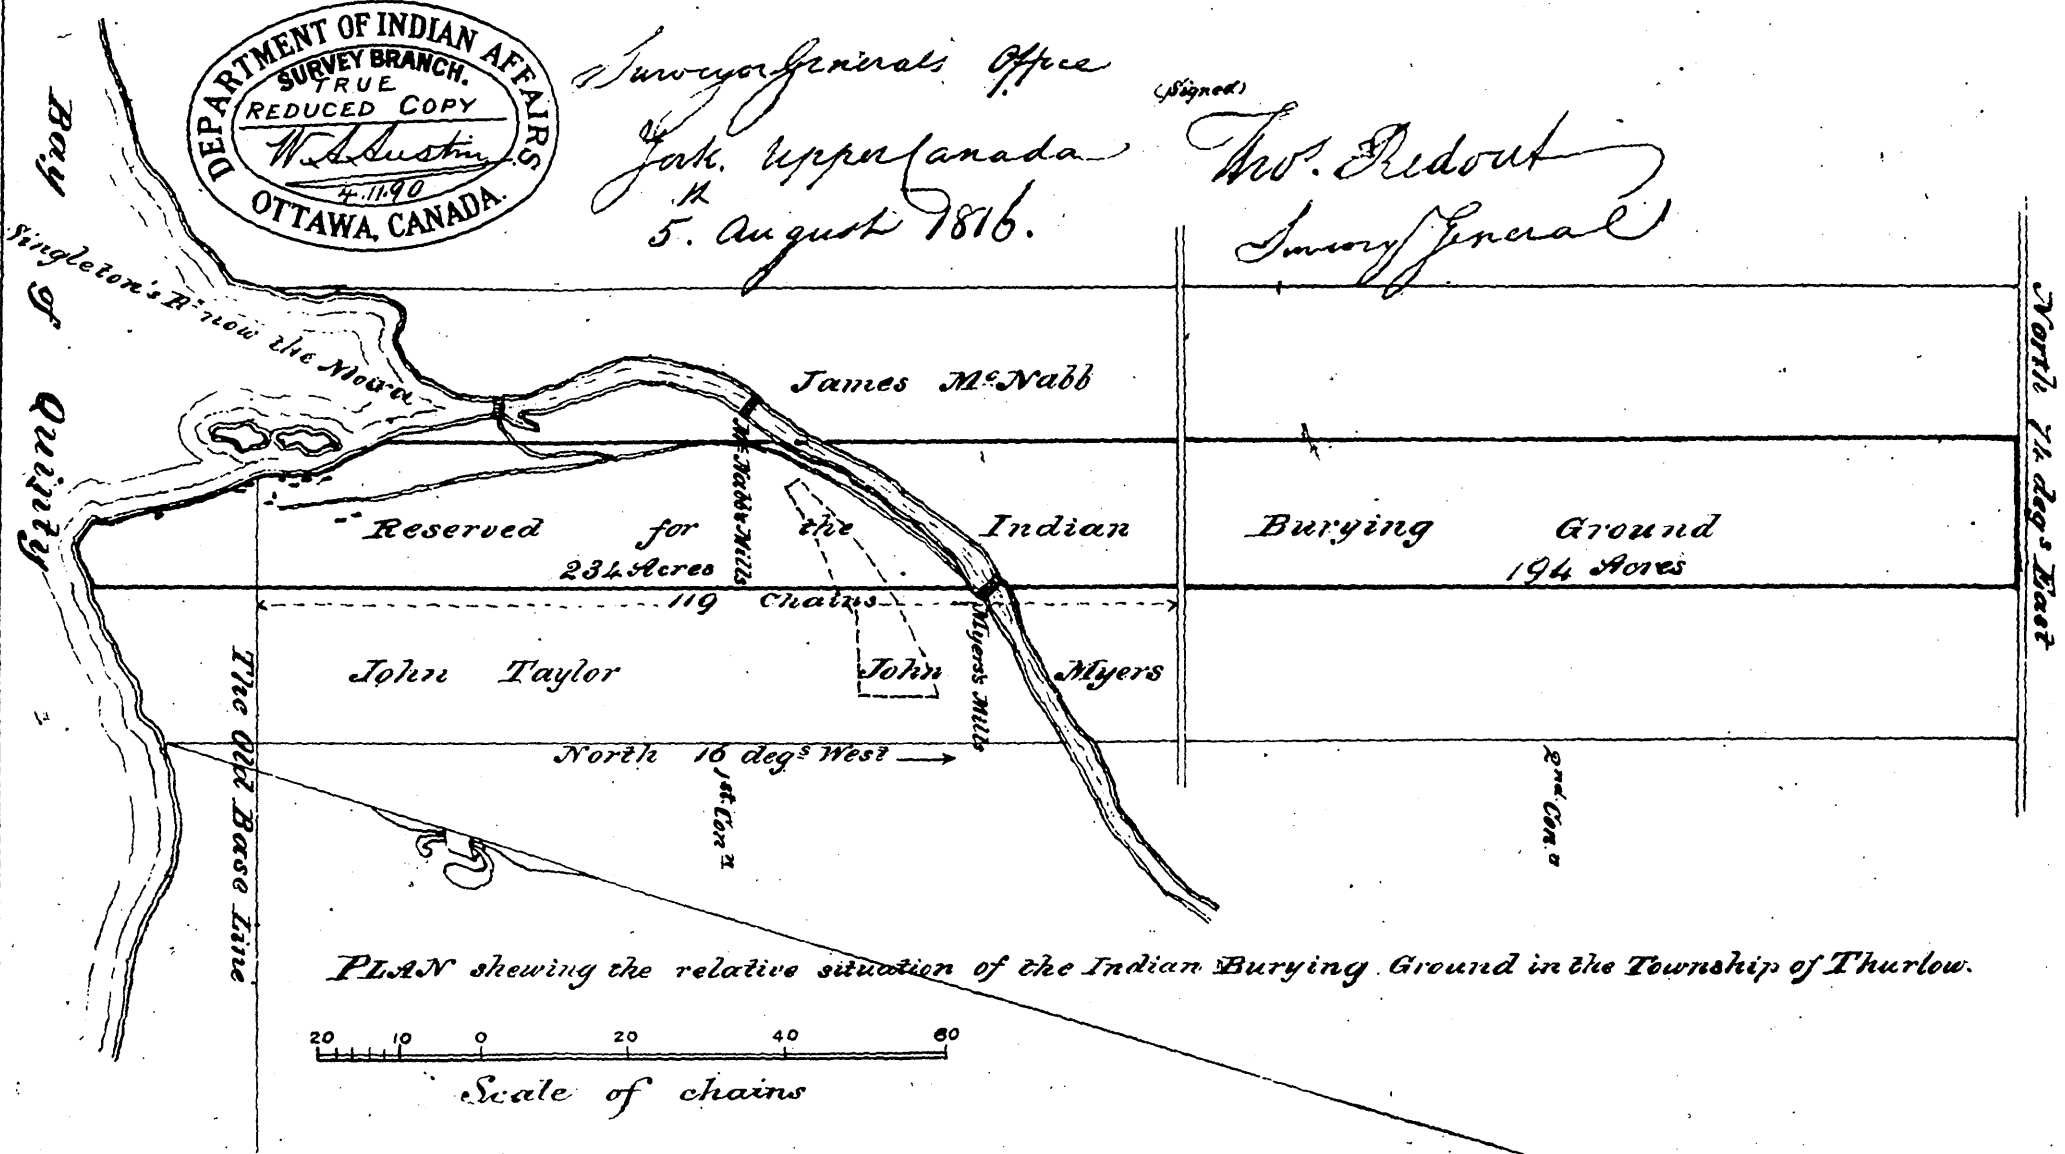 DEPARTMENT OF INDIAN AFFAIRS
SURVEY BRANCH.
TRUE
REDUCED COPY
W. A. Austin
4.11.90
OTTAWA, CANADA.
Surveyor Generals Office
York. Upper Canada
5.th August 1816.
(Signed)
Thos. Redout
Survey General
Bay of Quinty
Singleton's Rr now the Moira
James McNabb
McNabb's Mills
Reserved for the Indian Burying Ground
234 Acres
194 Acres
119 Chains
John Taylor
John Myers
Myers's Mills
North 16 degs West
North 74 degs East
The Old Base Line
1st Conn
2nd Con.n
PLAN shewing the relative situation of the Indian Burying Ground in the Township of Thurlow.
20 10 0 20 40 60
Scale of chains